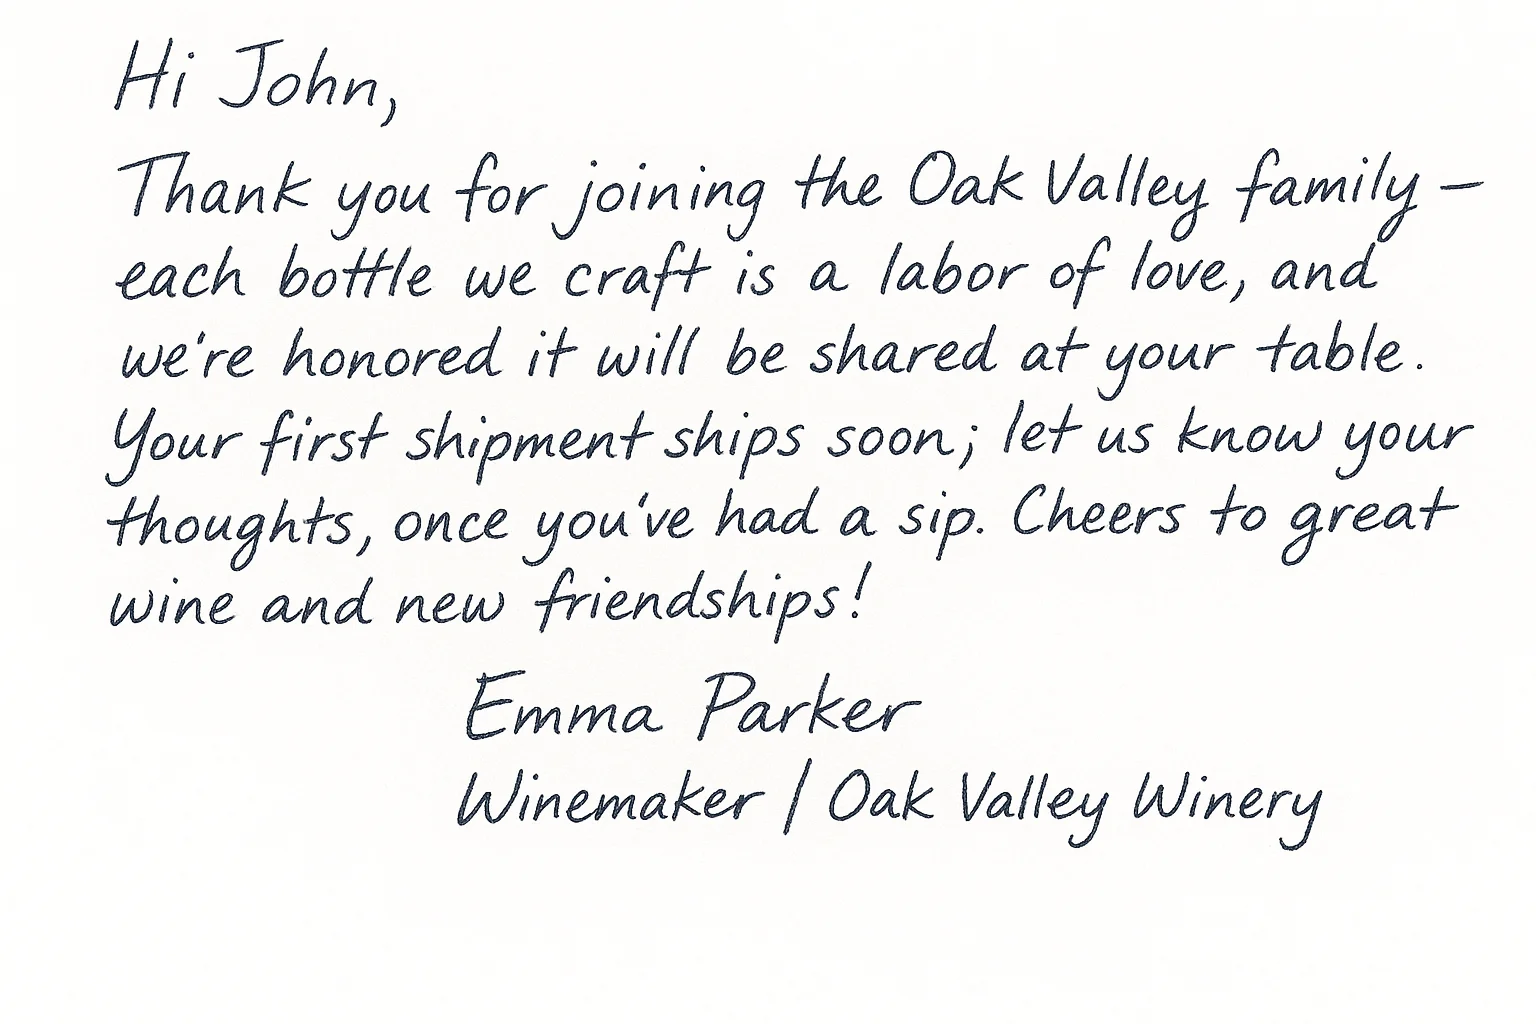 Hi John,
Thank you for joining the Oak Valley family –
each bottle we craft is a labor of love, and
we're honored it will be shared at your table.
Your first shipment ships soon; let us know your
thoughts, once you've had a sip. Cheers to great
wine and new friendships!
Emma Parker
Winemaker / Oak Valley Winery